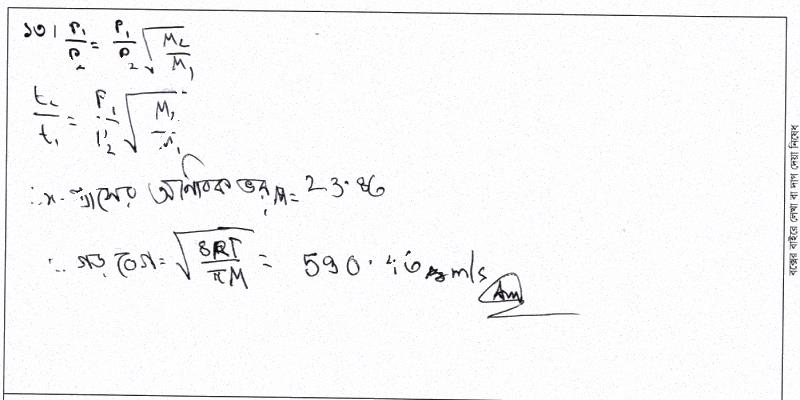 ১৩। r₁/r₂ = P₁/P₂ √(M₂/M₁)
t₂/t₁ = P₁/P₂ √(M₂/M₁)
∴ x-গ্যাসের আণবিক ভর, M = 23.86
∴ গড় বেগ = √(8RT/πM) = 590.46 m/s
Ans
বক্সের বাইরে লেখা বা দাগ দেয়া নিষেধ